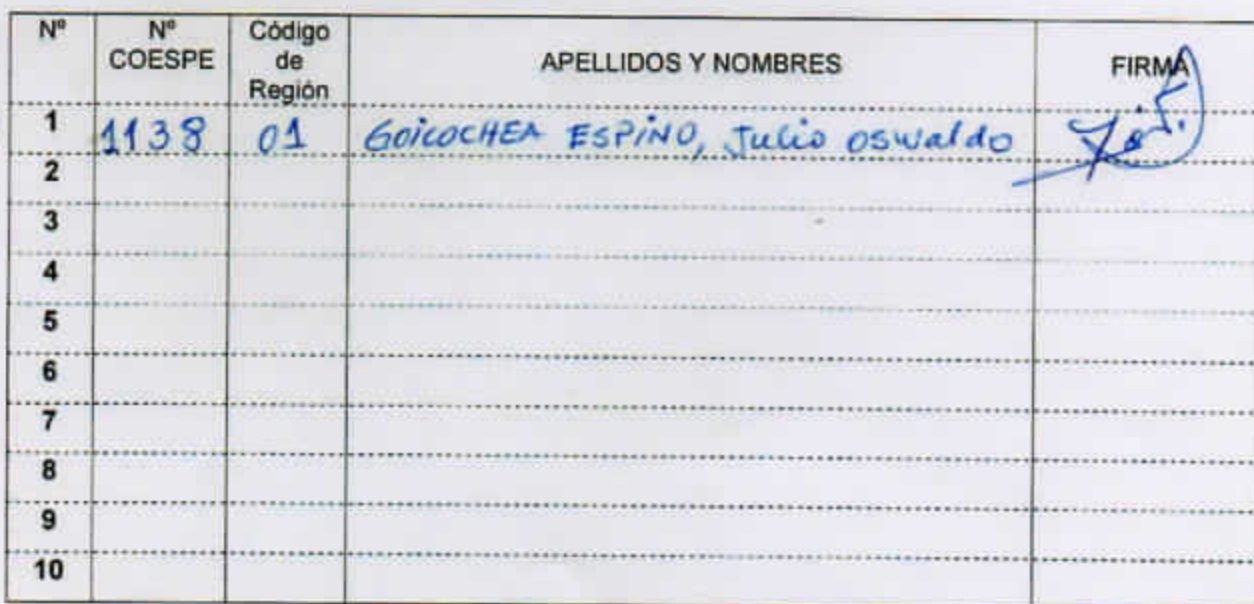 Nº Nº COESPE Código de Región APELLIDOS Y NOMBRES FIRMA
1 1138 01 GOICOCHEA ESPINO, Julio Oswaldo
2
3
4
5
6
7
8
9
10